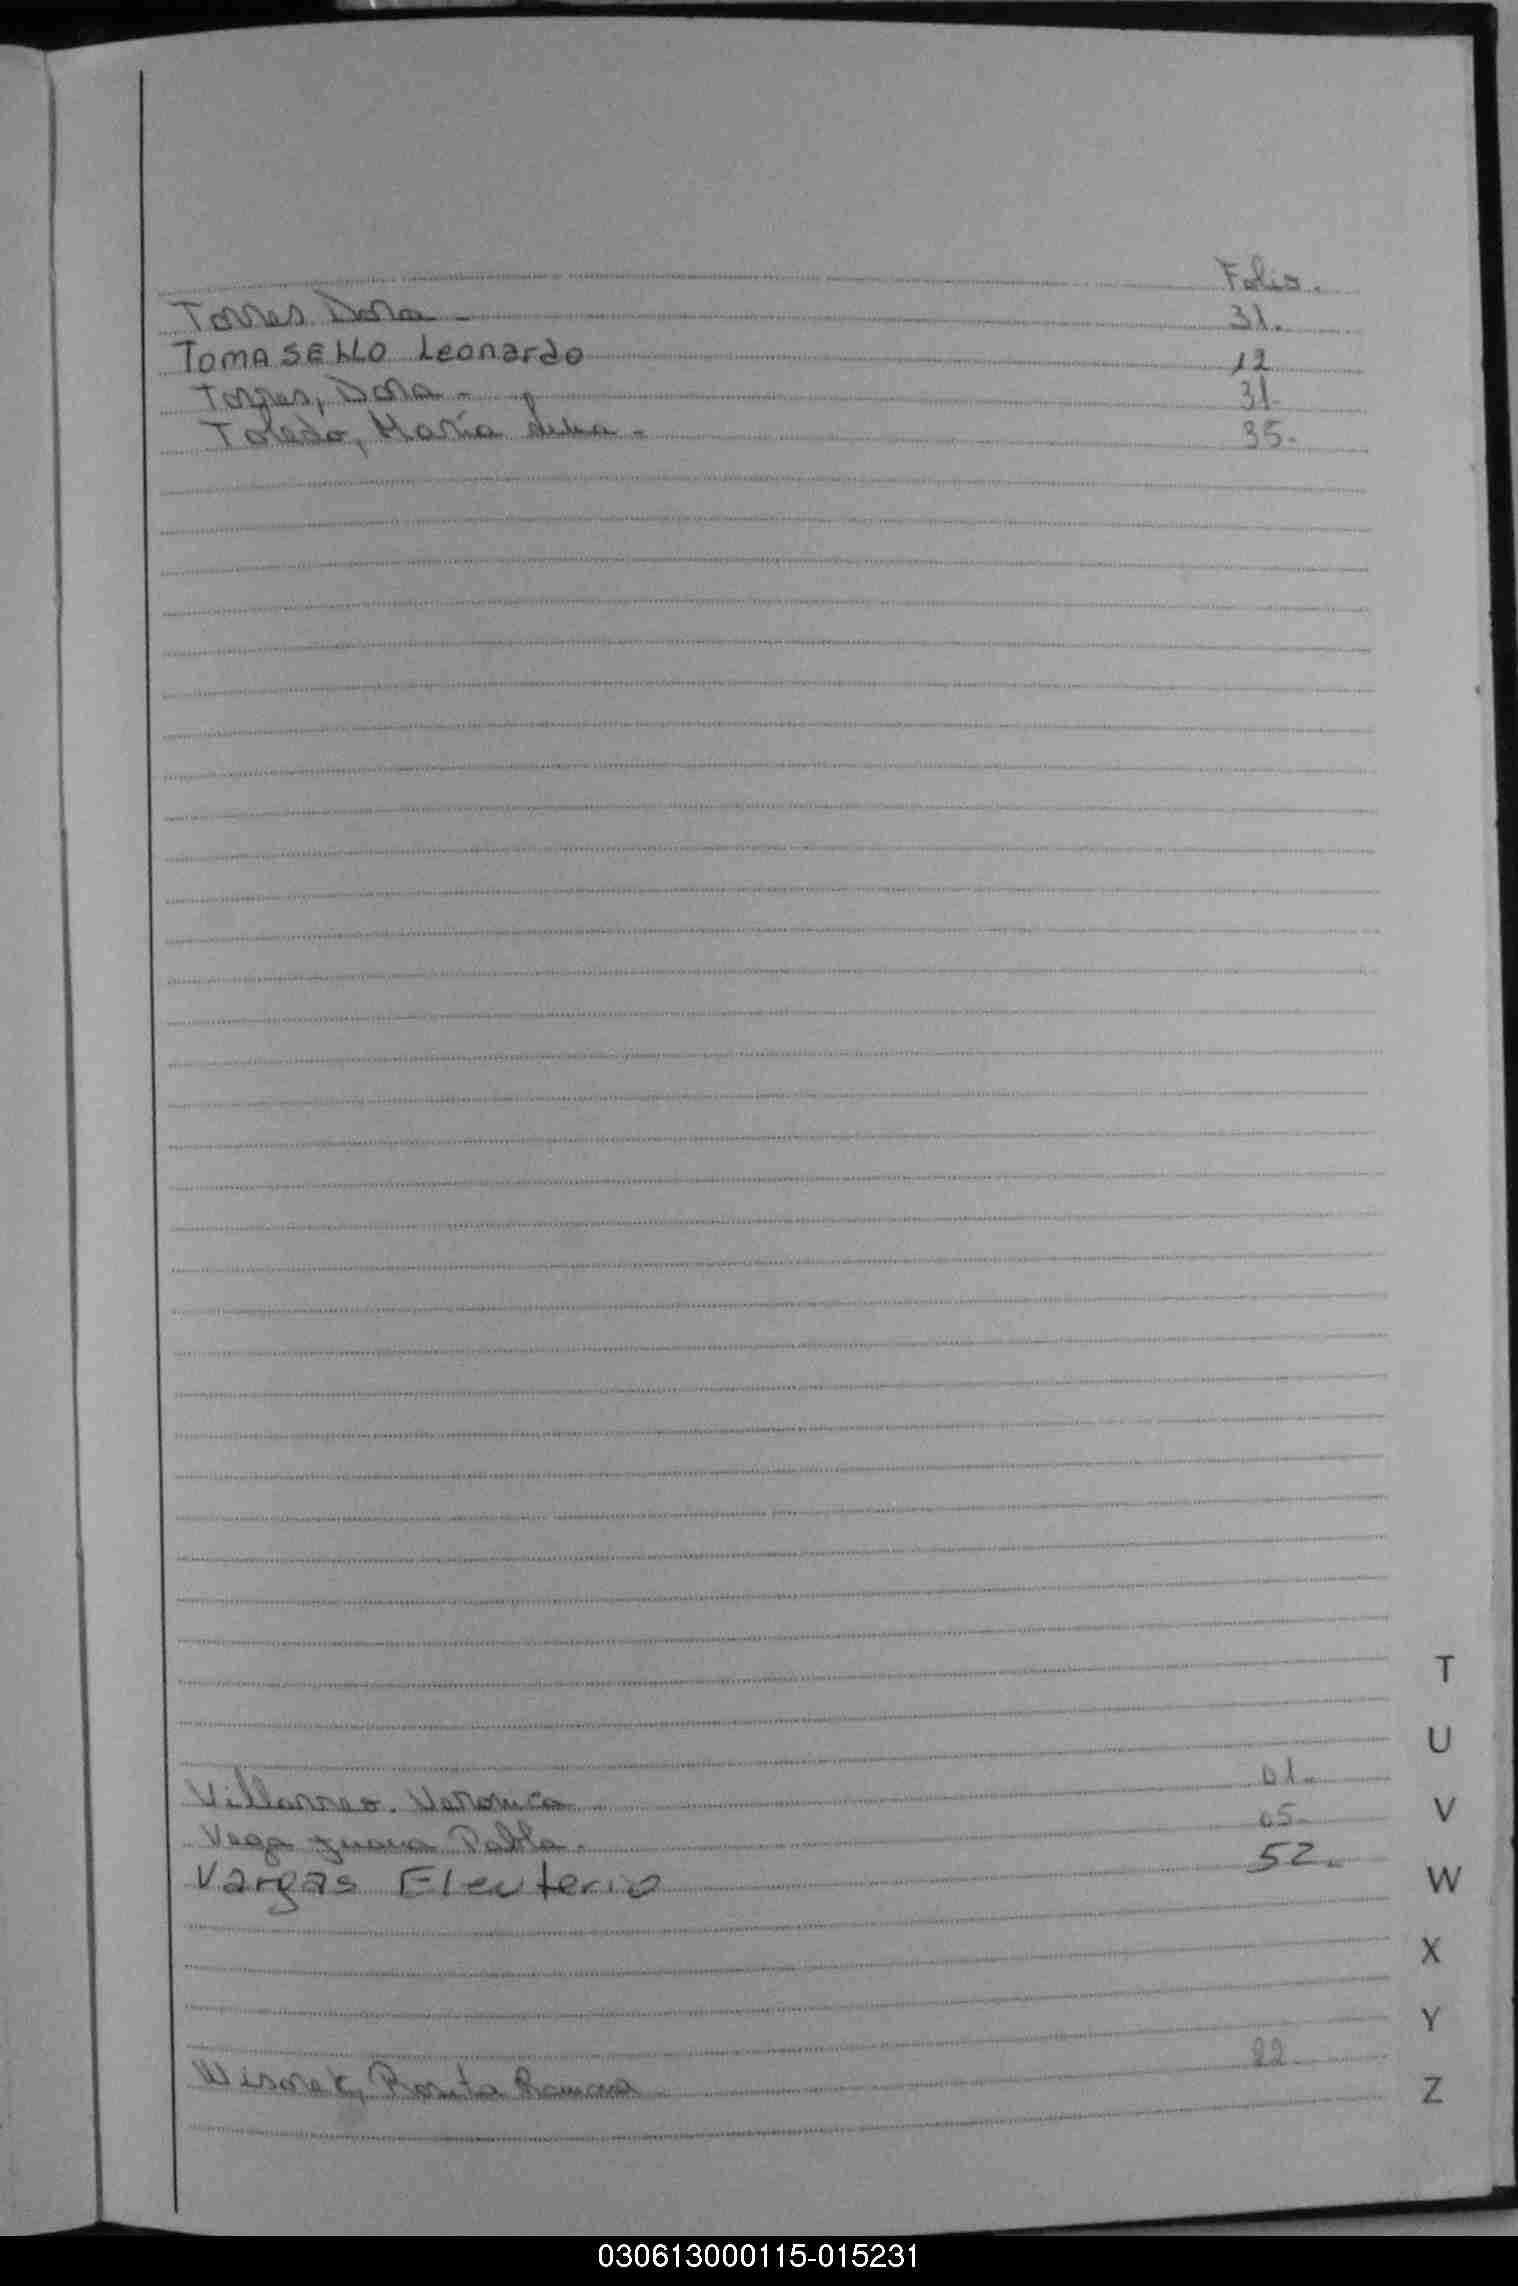 Folio.
Torres Dora - 31.
TOMASELLO Leonardo 12
Torres, Dora - 31.
Toledo, María - 35.
T
U
Villarreo. Veronica 01.
V
Vega Juana Pabla. 05.
Vargas Eleuterio 52.
W
X
Y
Rosita Ramona 22.
Z
030613000115-015231